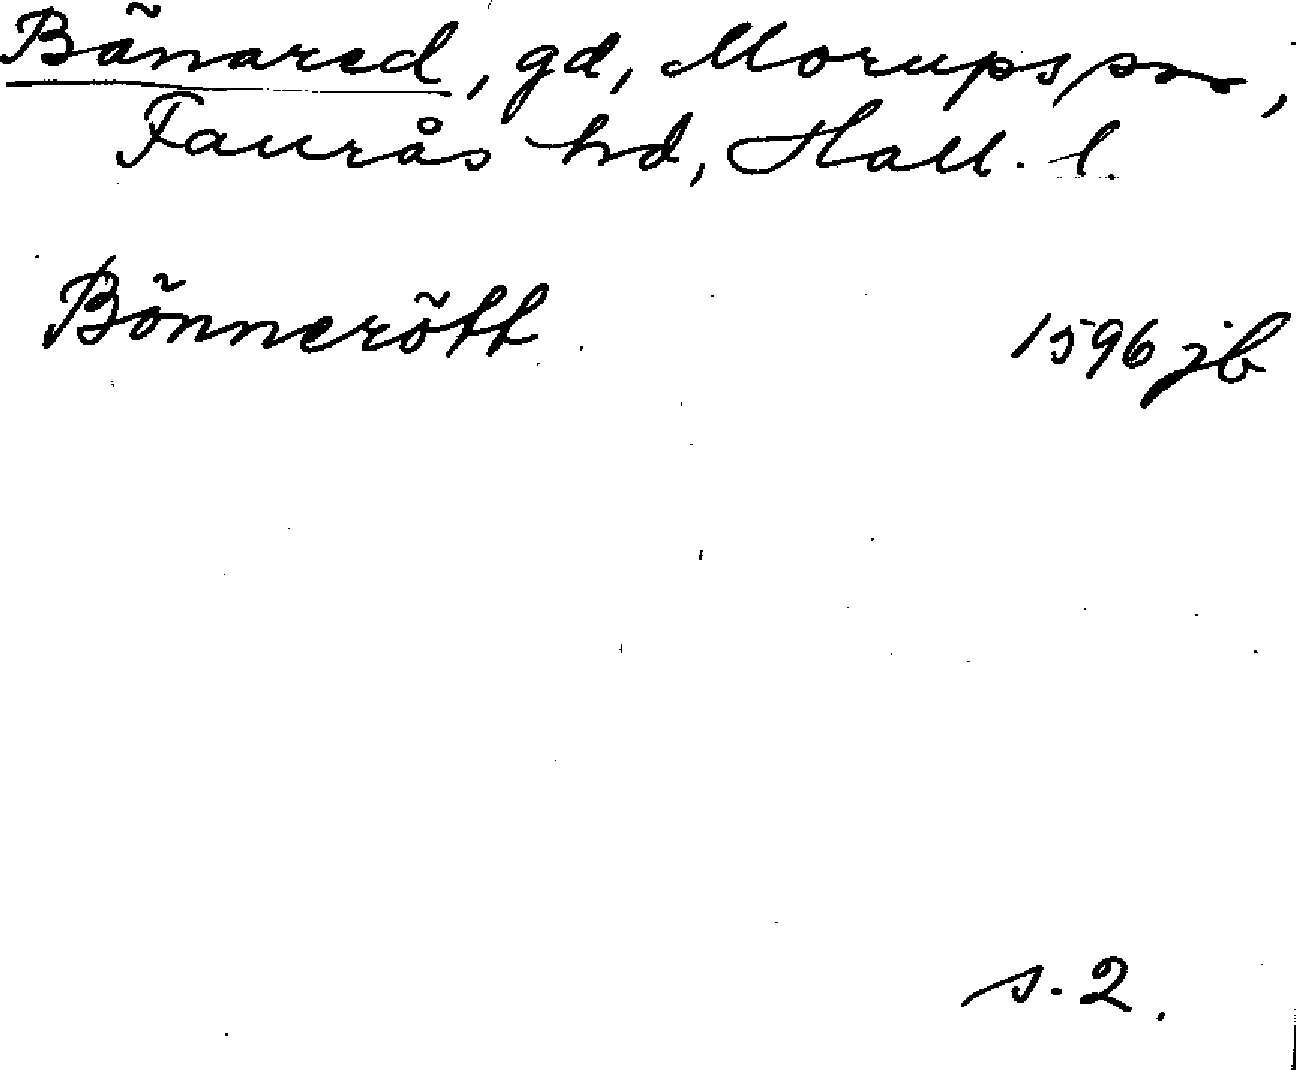 Bänared, gd, Morups sn,
Faurås hd, Hall. l.
Bönnerött 1596 jb
s. 2.